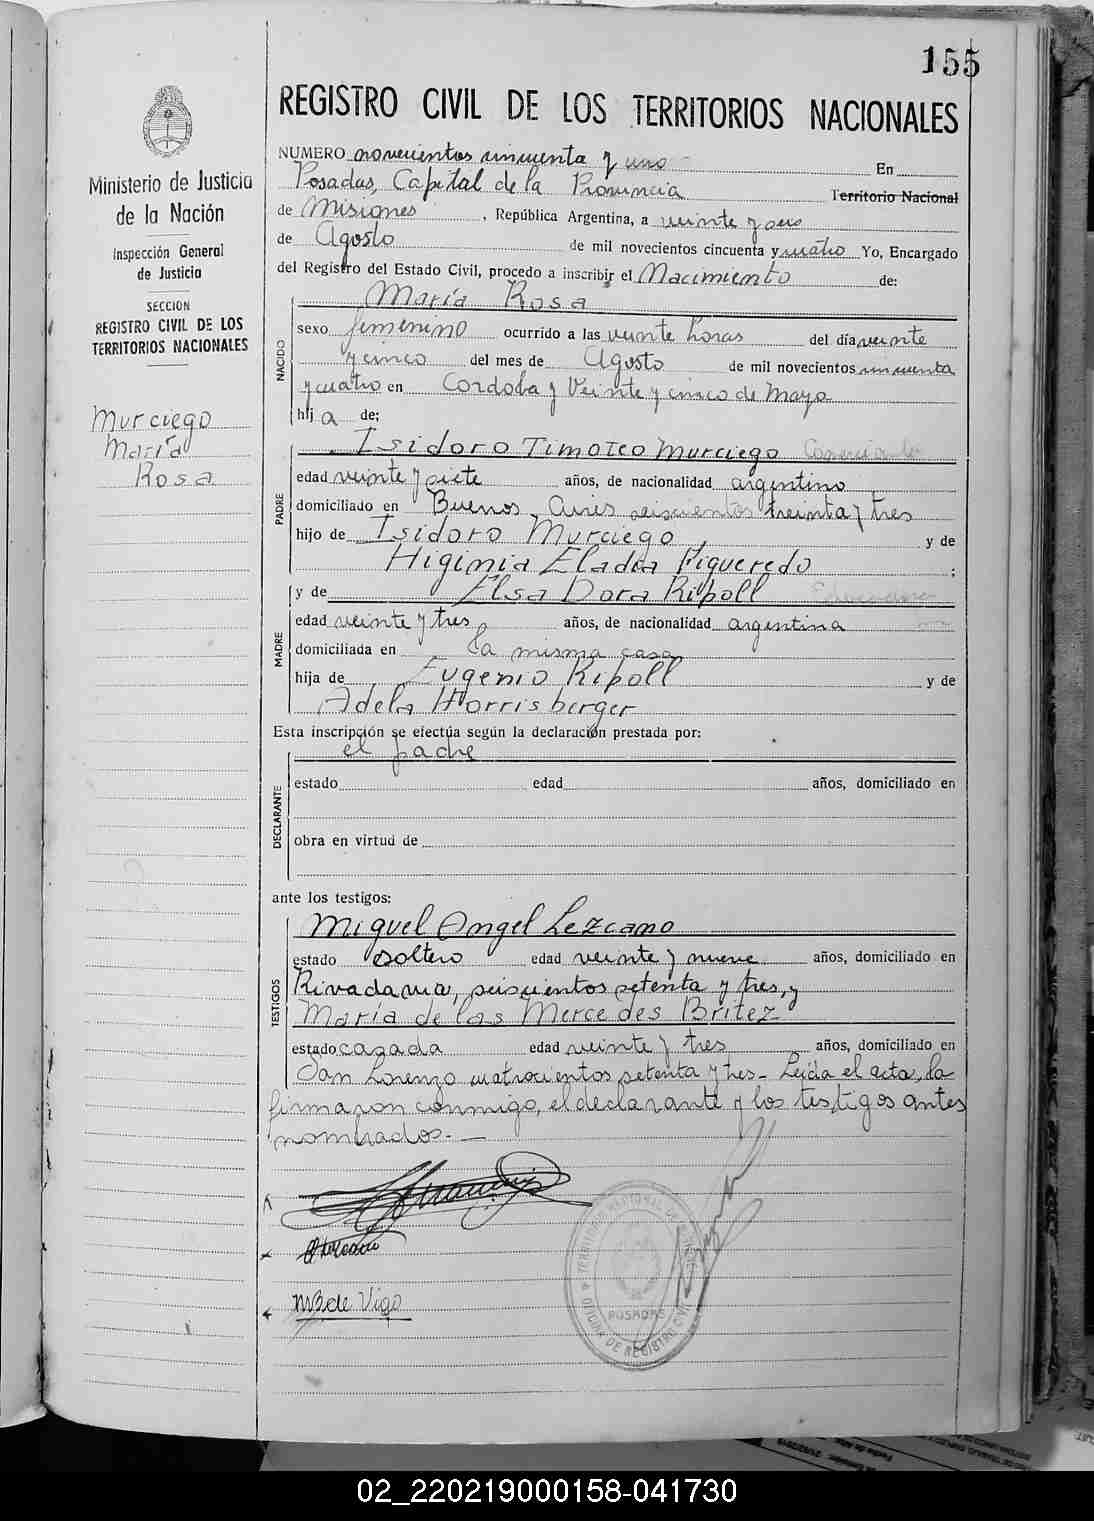 155
REGISTRO CIVIL DE LOS TERRITORIOS NACIONALES
Ministerio de Justicia
de la Nación
Inspección General
de Justicia
SECCION
REGISTRO CIVIL DE LOS
TERRITORIOS NACIONALES
Murciego
María
Rosa
NUMERO novecientos cincuenta y uno En
Posadas, Capital de la Provincia Territorio Nacional
de Misiones, República Argentina, a veinte y seis
de Agosto de mil novecientos cincuenta y cuatro Yo, Encargado
del Registro del Estado Civil, procedo a inscribir el Nacimiento de:
María Rosa
NACIDO
sexo femenino ocurrido a las veinte horas del día veinte
y cinco del mes de Agosto de mil novecientos cincuenta
y cuatro en Cordoba y Veinte y cinco de Mayo
hija de:
Isidoro Timoteo Murciego Comerciante
PADRE
edad veinte y siete años, de nacionalidad argentino
domiciliado en Buenos Aires seiscientos treinta y tres
hijo de Isidoro Murciego, y de
Higinia Eladia Figueredo;
y de Elsa Dora Ripoll
MADRE
edad veinte y tres años, de nacionalidad argentina
domiciliada en la misma casa
hija de Eugenio Ripoll y de
Adela Horrisberger
Esta inscripción se efectúa según la declaración prestada por:
el padre
DECLARANTE
estado edad años, domiciliado en
obra en virtud de
ante los testigos:
Miguel Angel Lezcano
TESTIGOS
estado soltero edad veinte y nueve años, domiciliado en
Rivadavia, seiscientos setenta y tres, y
María de las Mercedes Britez
estado casada edad veinte y tres años, domiciliado en
San Lorenzo cuatrocientos setenta y tres - Leída el acta, la
firmaron conmigo, el declarante y los testigos antes
nombrados. —
MB de Vigo
OFICINA DE REGISTRO CIVIL
POSADAS
02_220219000158-041730